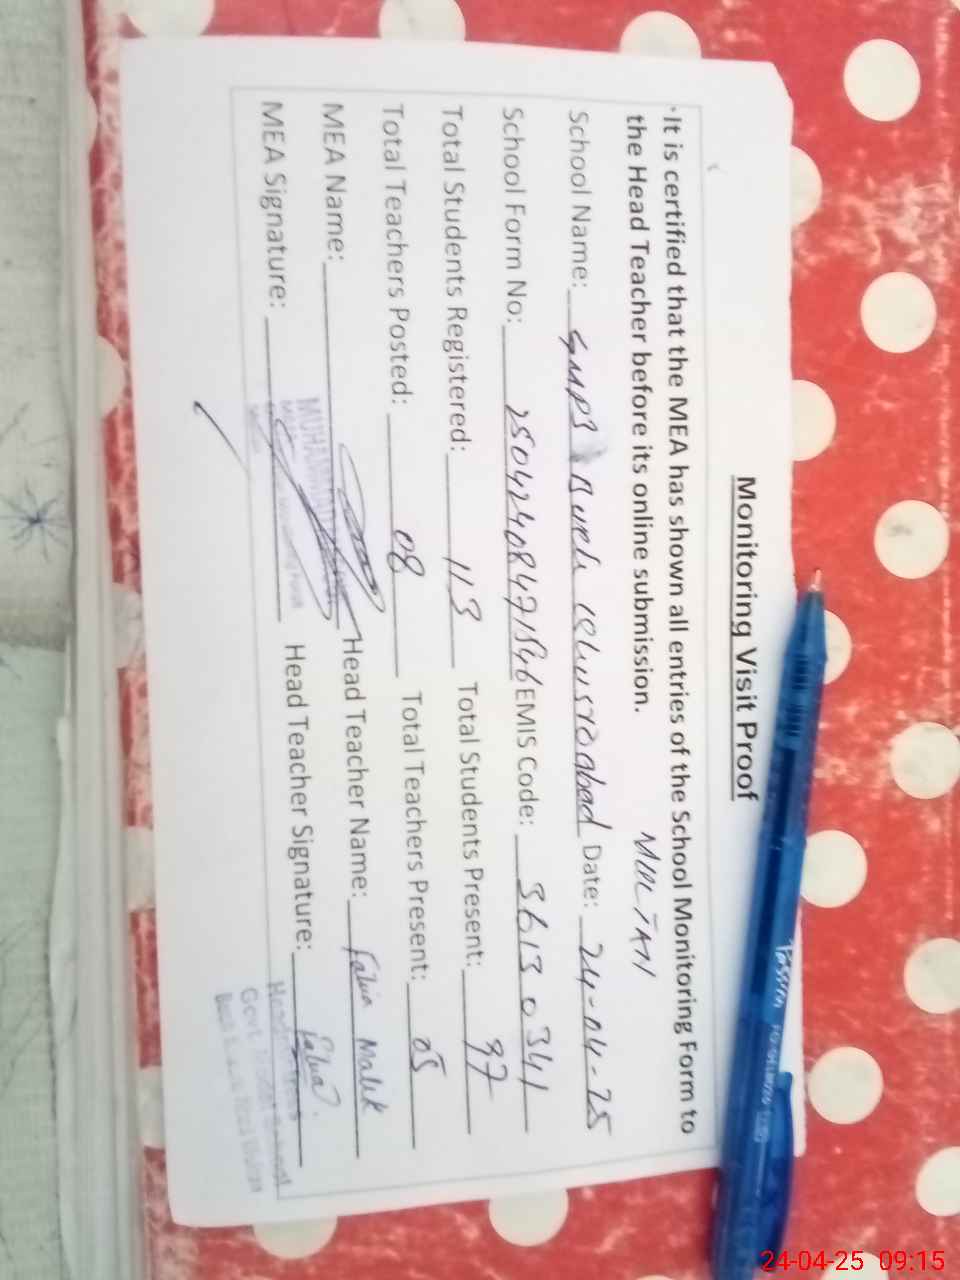 Monitoring Visit Proof
It is certified that the MEA has shown all entries of the School Monitoring Form to
the Head Teacher before its online submission.
MULTAN
School Name: GMPS Date: 24-04-25
School Form No: EMIS Code: 36130341
Total Students Registered: 113 Total Students Present: 97
Total Teachers Posted: 08 Total Teachers Present: 05
MEA Name: Head Teacher Name: Malik
MEA Signature: Head Teacher Signature:
24-04-25 09:15